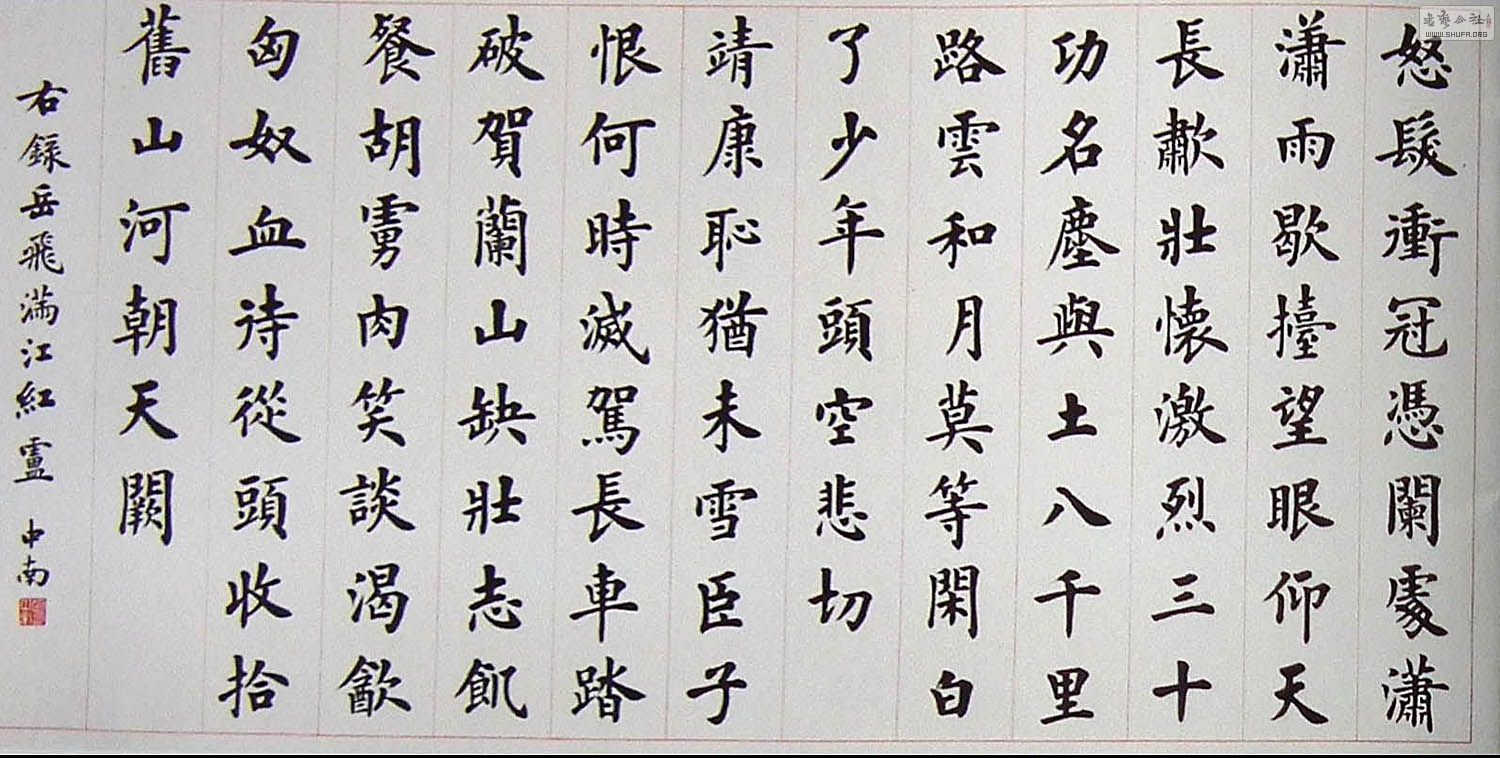 怒髮衝冠憑闌處瀟
瀟雨歇擡望眼仰天
長歗壯懷激烈三十
功名塵與土八千里
路雲和月莫等閑白
了少年頭空悲切
靖康恥猶未雪臣子
恨何時滅駕長車踏
破賀蘭山缺壯志飢
餐胡虜肉笑談渴飲
匈奴血待從頭收拾
舊山河朝天闕
右錄岳飛滿江紅盧中南
WWW.SHUFA.ORG